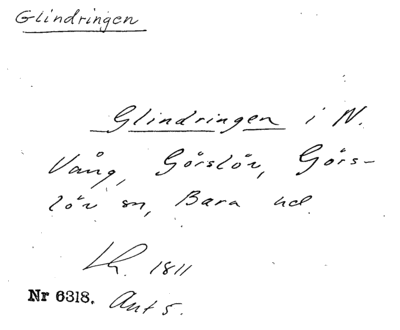 Glindringen
Glindringen i N.
Vång, Görslöv, Görs-
löv sn, Bara hd.
Lh. 1811
Nr 6318. Akt 5.